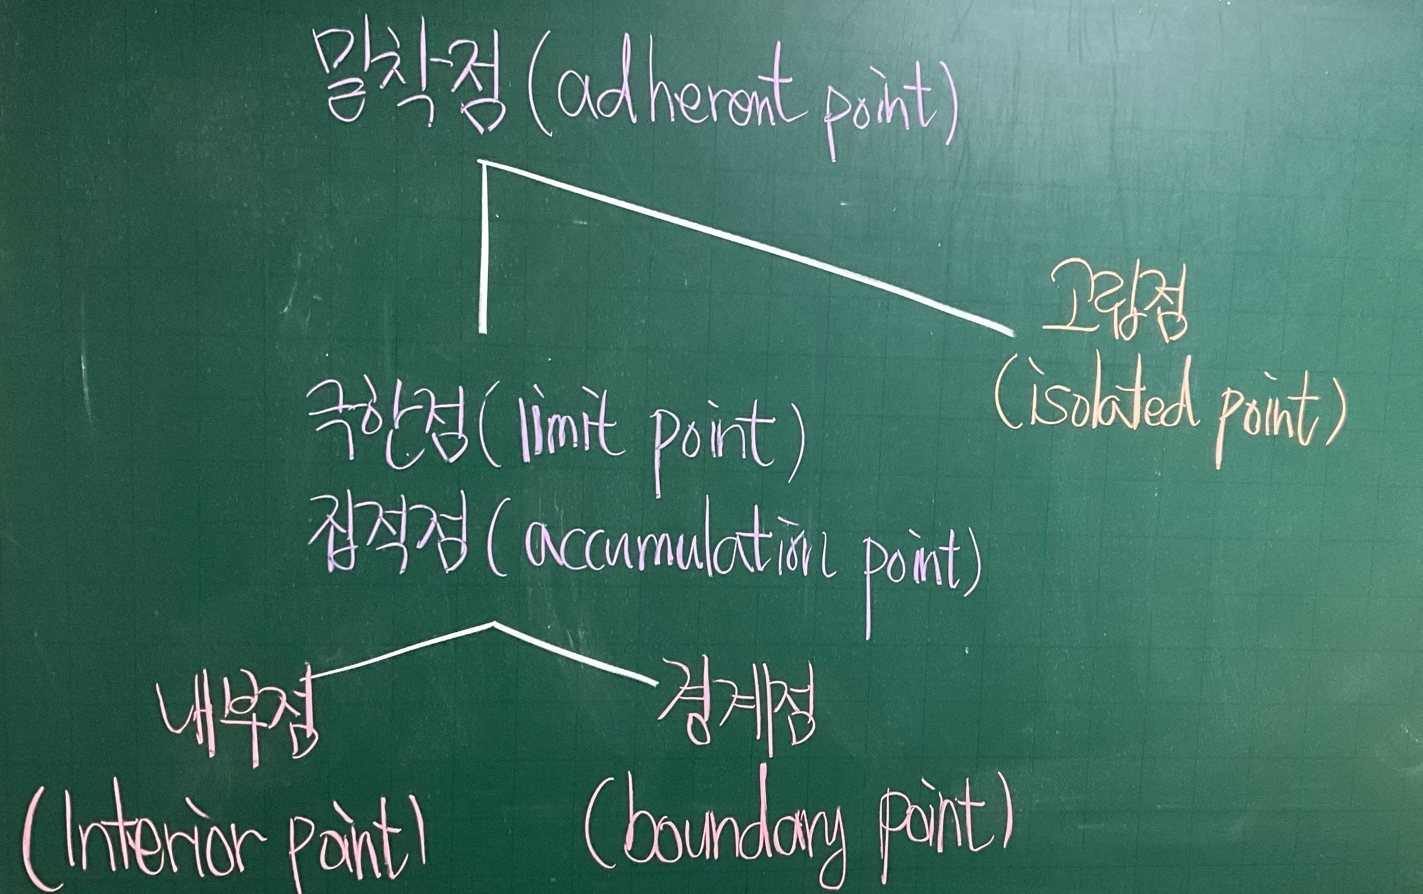 밀착점(adherent point)
고립점
(isolated point)
극한점(limit point)
집적점(accumulation point)
내부점
(Interior point)
경계점
(boundary point)